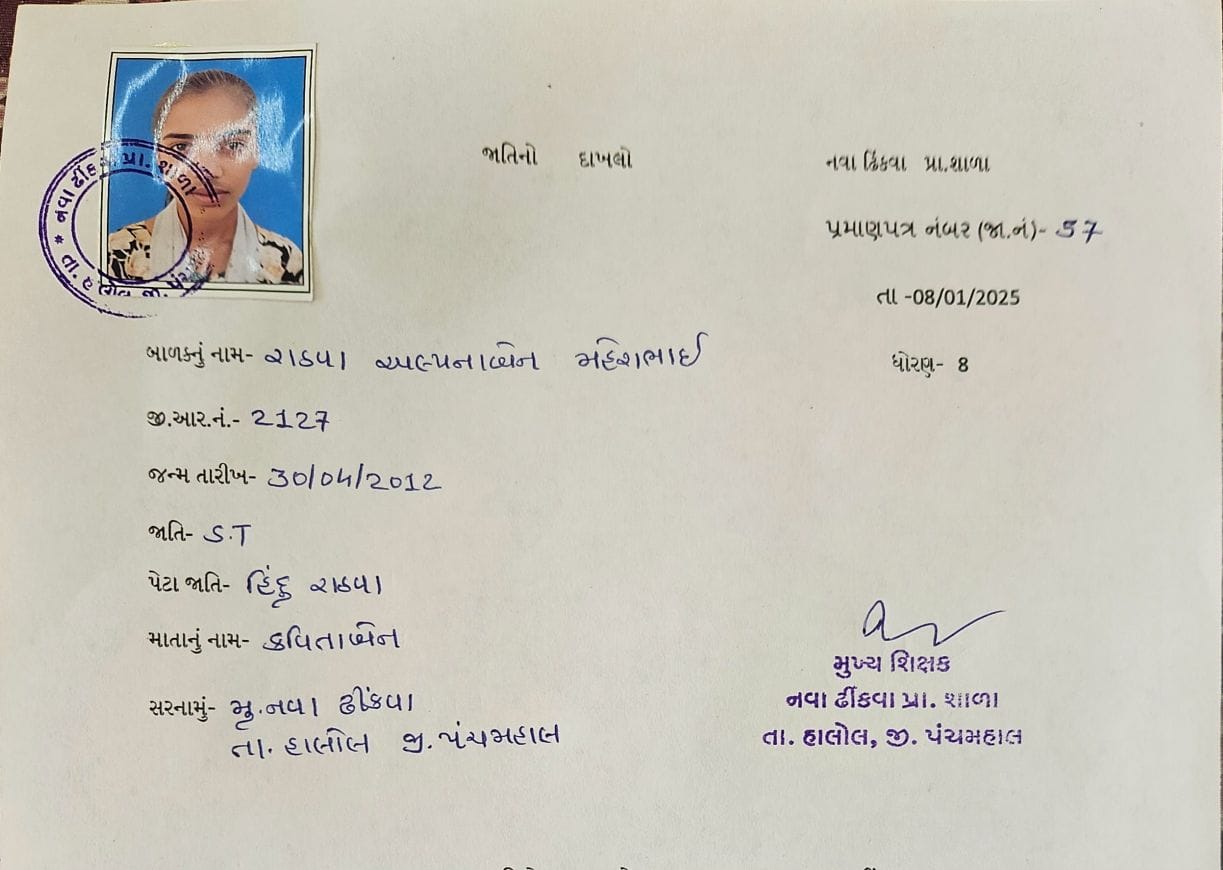 જાતિનો દાખલો
નવા ઢિંકવા પ્રા.શાળા
પ્રમાણપત્ર નંબર (જા.નં)- 57
તા -08/01/2025
ધોરણ- 8
નવા ઢીંકવા પ્રા. શાળા * તા. હાલોલ જી. પંચમ
બાળકનું નામ- રાઠવા અલ્પનાબેન મહેશભાઈ
જી.આર.નં.- 2127
જન્મ તારીખ- 30/04/2012
જાતિ- S.T
પેટા જાતિ- હિંદુ રાઠવા
માતાનું નામ- કવિતાબેન
સરનામું- મુ.નવા ઢીંકવા
તા. હાલોલ જી.પંચમહાલ
મુખ્ય શિક્ષક
નવા ઢીંકવા પ્રા. શાળા
તા. હાલોલ, જી. પંચમહાલ